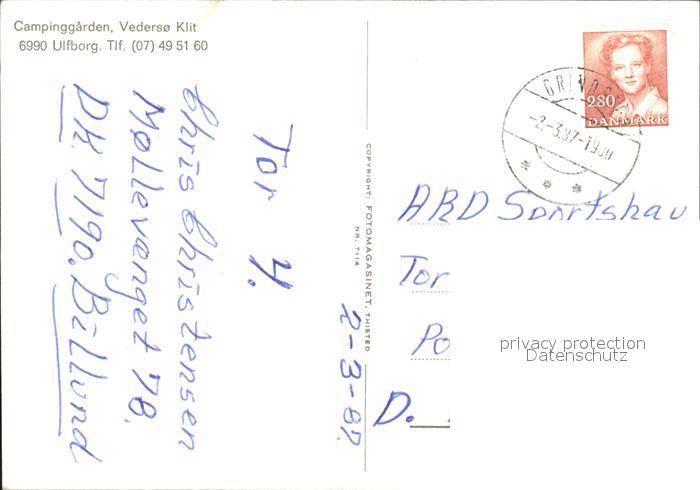 Campinggården, Vedersø Klit
6990 Ulfborg. Tlf. (07) 49 51 60
Tor 4.
Chris Christensen
Møllevænget 78.
DK. 7190. Billund
2-3-87.
COPYRIGHT: FOTOMAGASINET, THISTED
NR. 7114
280
DANMARK
-2.-3.87-1930
ARD Sportshau
Tor
Po
D.
privacy protection
Datenschutz